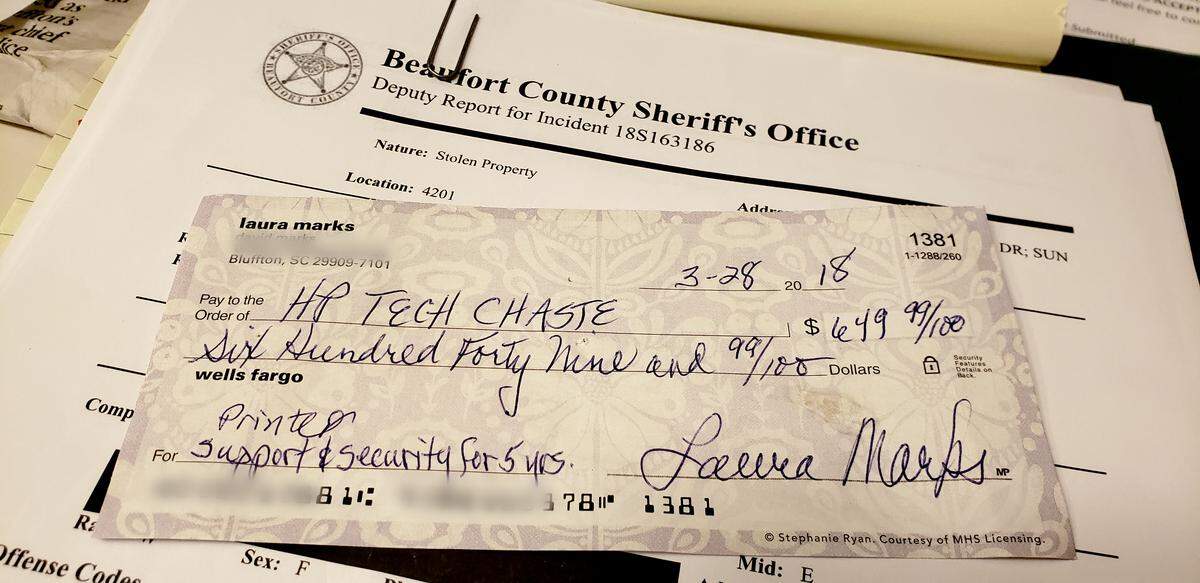 as
chief
SHERIFF'S OFFICE
BEAUFORT COUNTY
Beaufort County Sheriff's Office
Deputy Report for Incident 18S163186
Nature: Stolen Property
Location: 4201
Addr
DR; SUN
laura marks
david marks
Bluffton, SC 29909-7101
1381
1-1288/260
3-28 20 18
Pay to the
Order of HP TECH CHASTE $ 649 99/100
Six Hundred Forty Nine and 99/100 Dollars
Security
Features
Details on
Back.
wells fargo
Printer
For Support & Security for 5 yrs. Laura Marks MP
81 78 1381
© Stephanie Ryan. Courtesy of MHS Licensing.
Comp
Offense Codes
Sex: F
Mid: E
Submitted
feel free to